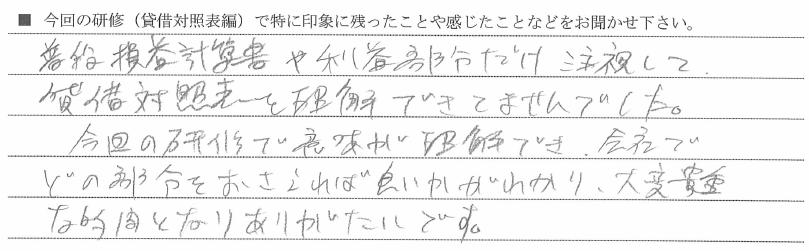 ■ 今回の研修（貸借対照表編）で特に印象に残ったことや感じたことなどをお聞かせ下さい。
普段損益計算書や利益部分だけ注視して、
貸借対照表を理解できてませんでした。
今回の研修で意味が理解でき、会社で
どの部分をおさえれば良いかがわかり、大変貴重
な時間となりありがたいです。